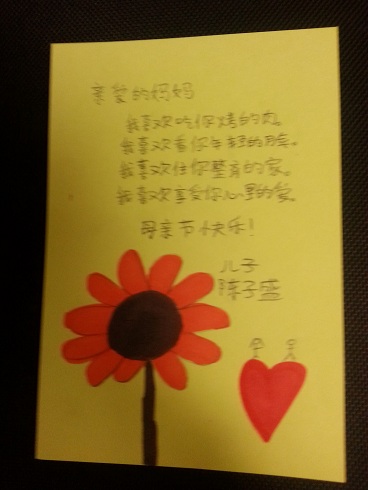 亲爱的妈妈
我喜欢吃你烤的肉。
我喜欢看你年轻的脸。
我喜欢住你的家。
我喜欢享受你的爱。
母亲节快乐！
儿子
陈子盛